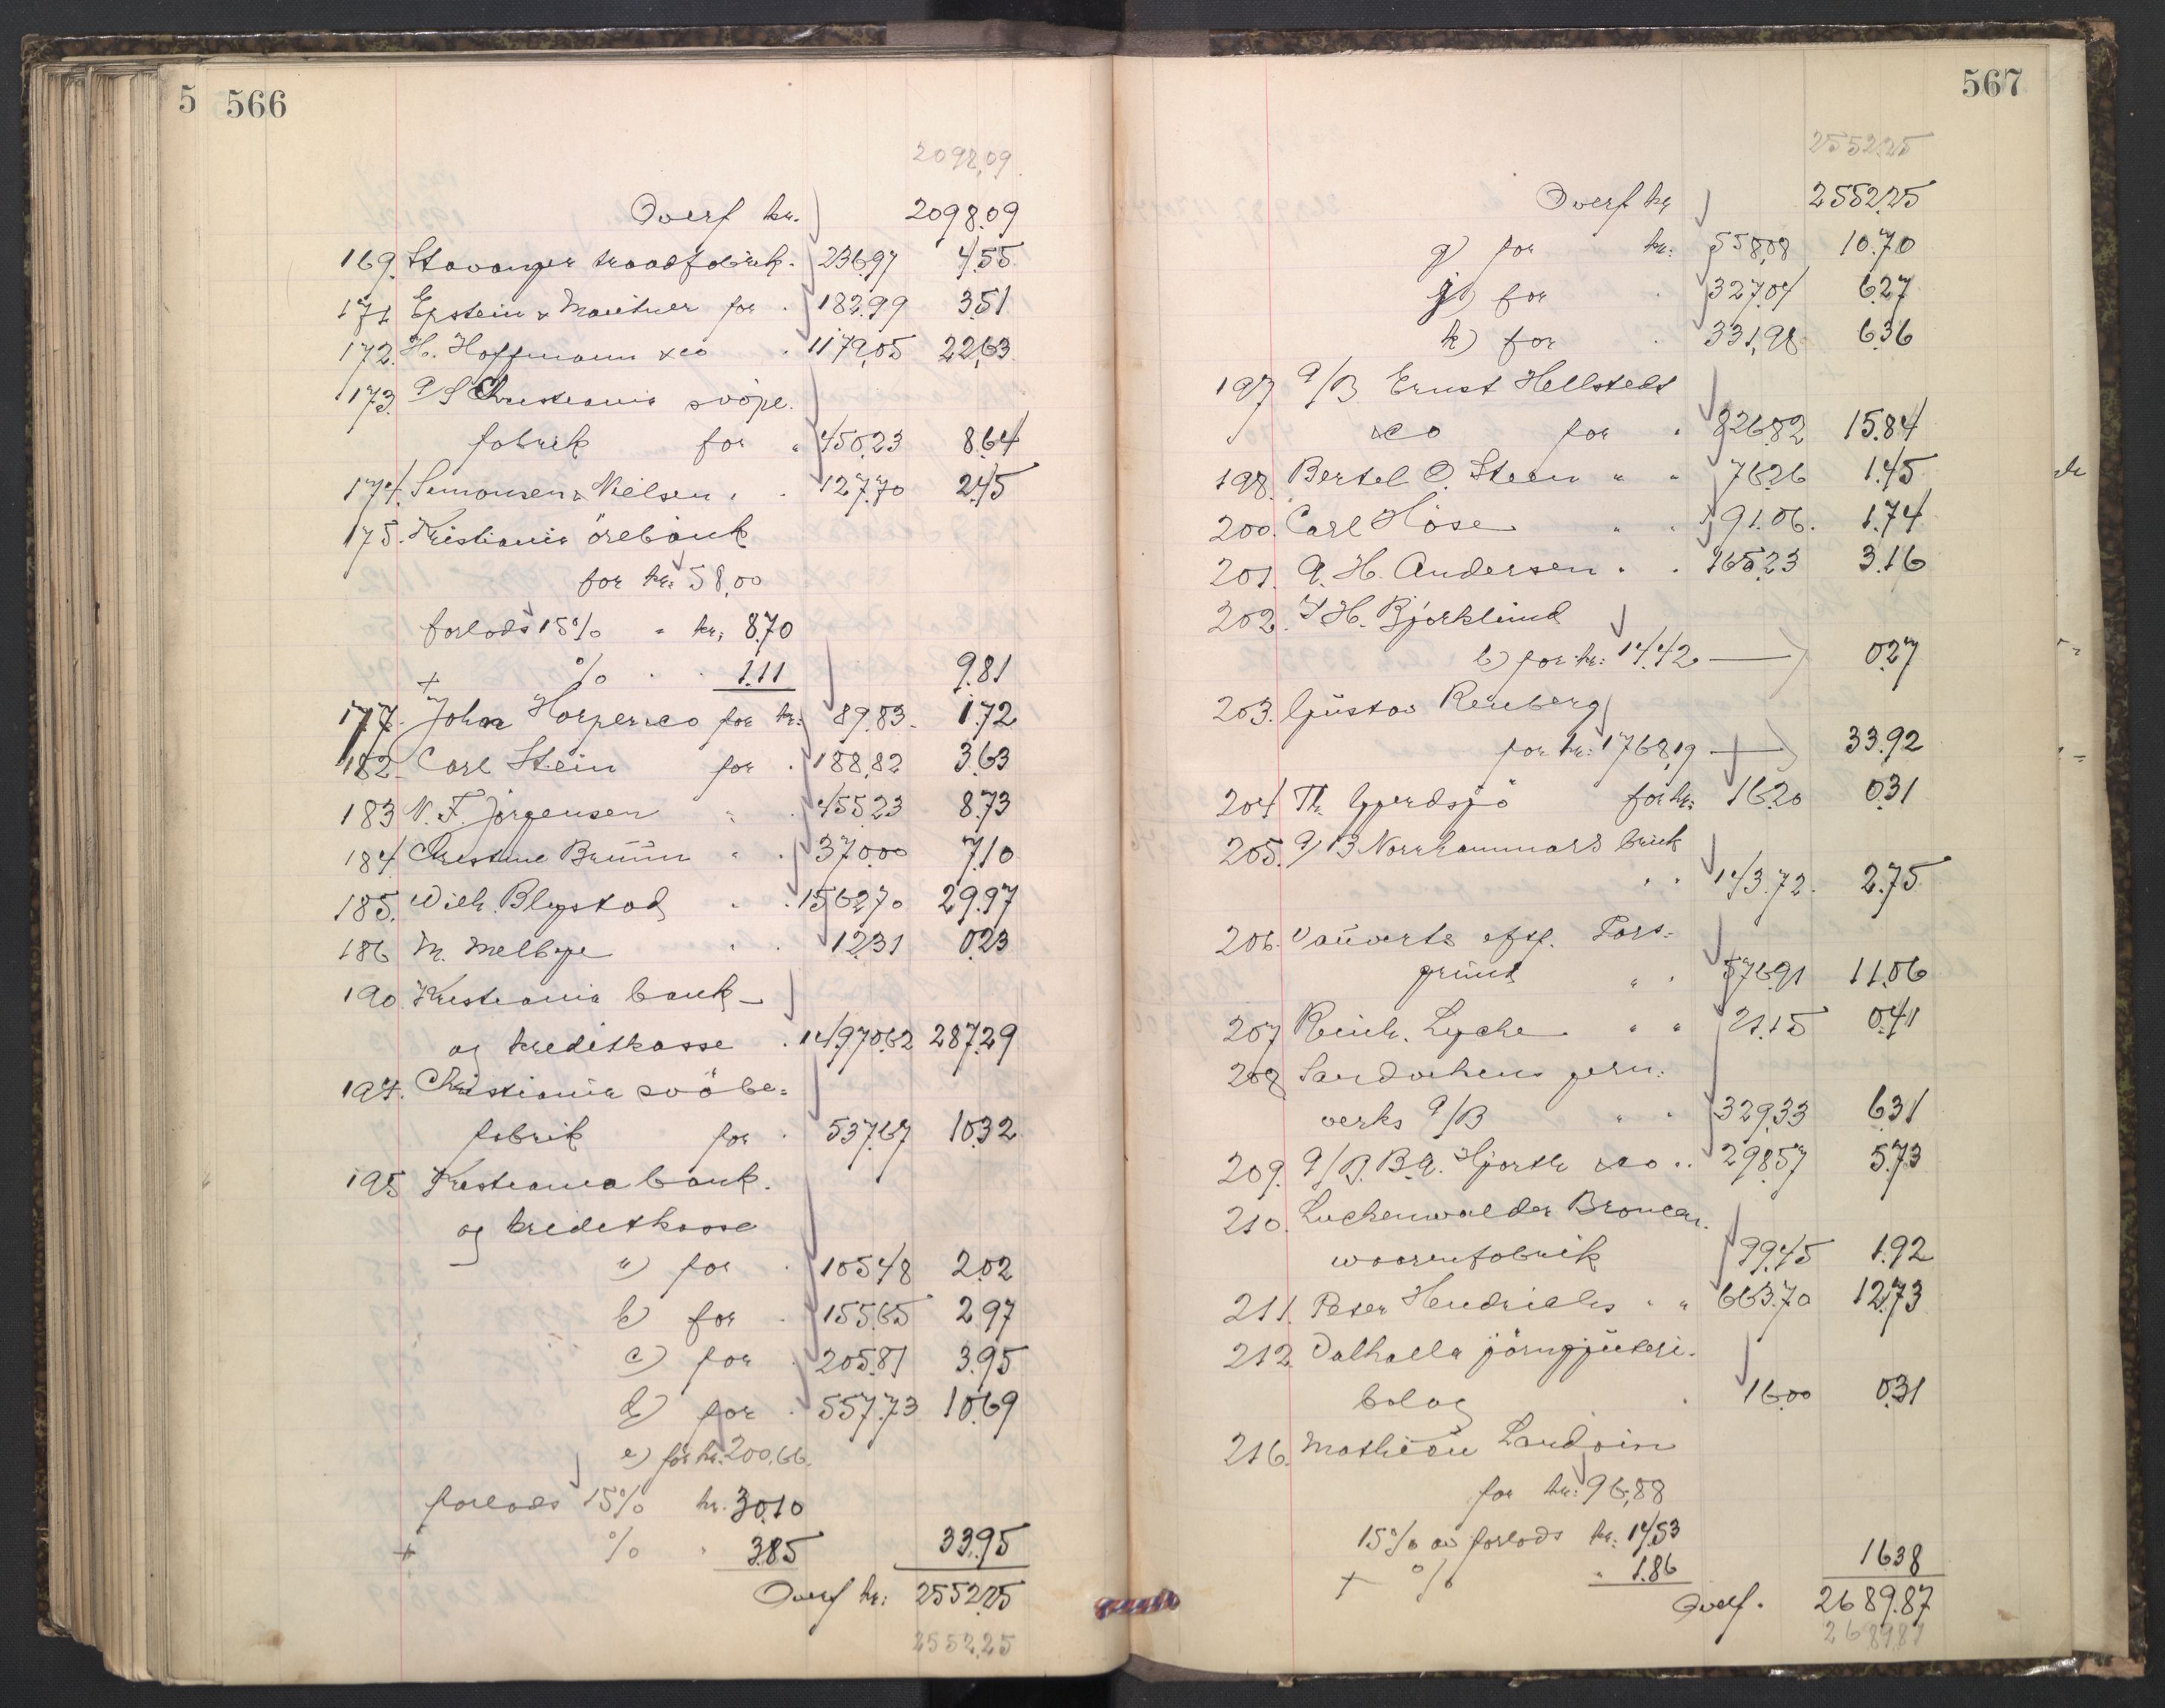 5 566
2098,09
Overf kr. 2098.09
169. Stavanger traadfabrik. 236.97 4.55
171 Epstein & Mautner for . 182.99 3.51
172. H. Hoffmann & co . 1179,05 22,63
173. A/S Christiania svöpe
fabrik for " 450.23 8.64
174. Simonsen & Nielsen . . 127.70 2.45
175. Kristiania örebank
for kr. 58,00
forlods 15% " kr. 8.70
+ % . . 1.11 9.81
177. John Harper & co for kr: 89.83 1.72
182. Carl Stein for . 188,82 3.63
183 N. F. Jörgensen " . 455.23 8.73
184 Christine Bruun " . 370.00 7.10
185. Wilh. Blystad " . 1562.70 29.97
186 M. Melbye " . 12.31 0.23
190. Kristiania bank-
og kreditkasse . 14970.62 287.29
194. Christiania svöbe=
fabrik for . 537.67 10.32
195 Kristiania bank.
og kreditkasse
a) for . 105.48 2.02
b) for . 155.65 2.97
c) for . 205.81 3.95
d) for . 557.73 10.69
e) for kr. 200.66.
forlods 15% kr. 30.10
+ % . 3.85 33.95
Overf kr: 2552.25
2552.25
567
2552.25
Overf kr 2552.25
g) for kr: 558,08 10.70
j) for . 327.04 6.27
k) for . 331,98 6.36
197 A/B Ernst Hellstedt
& co for . 826.82 15.84
198. Bertel O. Steen " " 76.26 1.45
200. Carl Höse " . 91.06. 1.74
201. A. H. Andersen . . 165.23 3.16
202. H. Bjorklund
b) for kr: 14.42 0.27
203. Gustav Renberg
for kr: 1768,19 33.92
204 Th. Gjerdsjö for kr: 16.20 0.31
205. A/B Norrhammars bruk
. . 143.72. 2.75
206. Vauverts eftf. Pors=
grund " . 576.91 11.06
207 Reinh. Lyche " " 21.15 0.41
208 Sandvikens jern=
verks A/B " " 329,33 6.31
209. A/B. B.A. Hjorth & co .. 298.57 5.73
210. Luckenwalder Broncer.
waarenfabrik 99.45 1.92
211. Peter Hendrichs " " 663.70 12.73
212. Valhalla jörngjuteri.
bolag . 16.00 0.31
216. Mathieu Landoin
for kr: 96,88
15% av forlods kr: 14.53
+ % " 1.86 16.38
Overf. 2689.87
2689.87